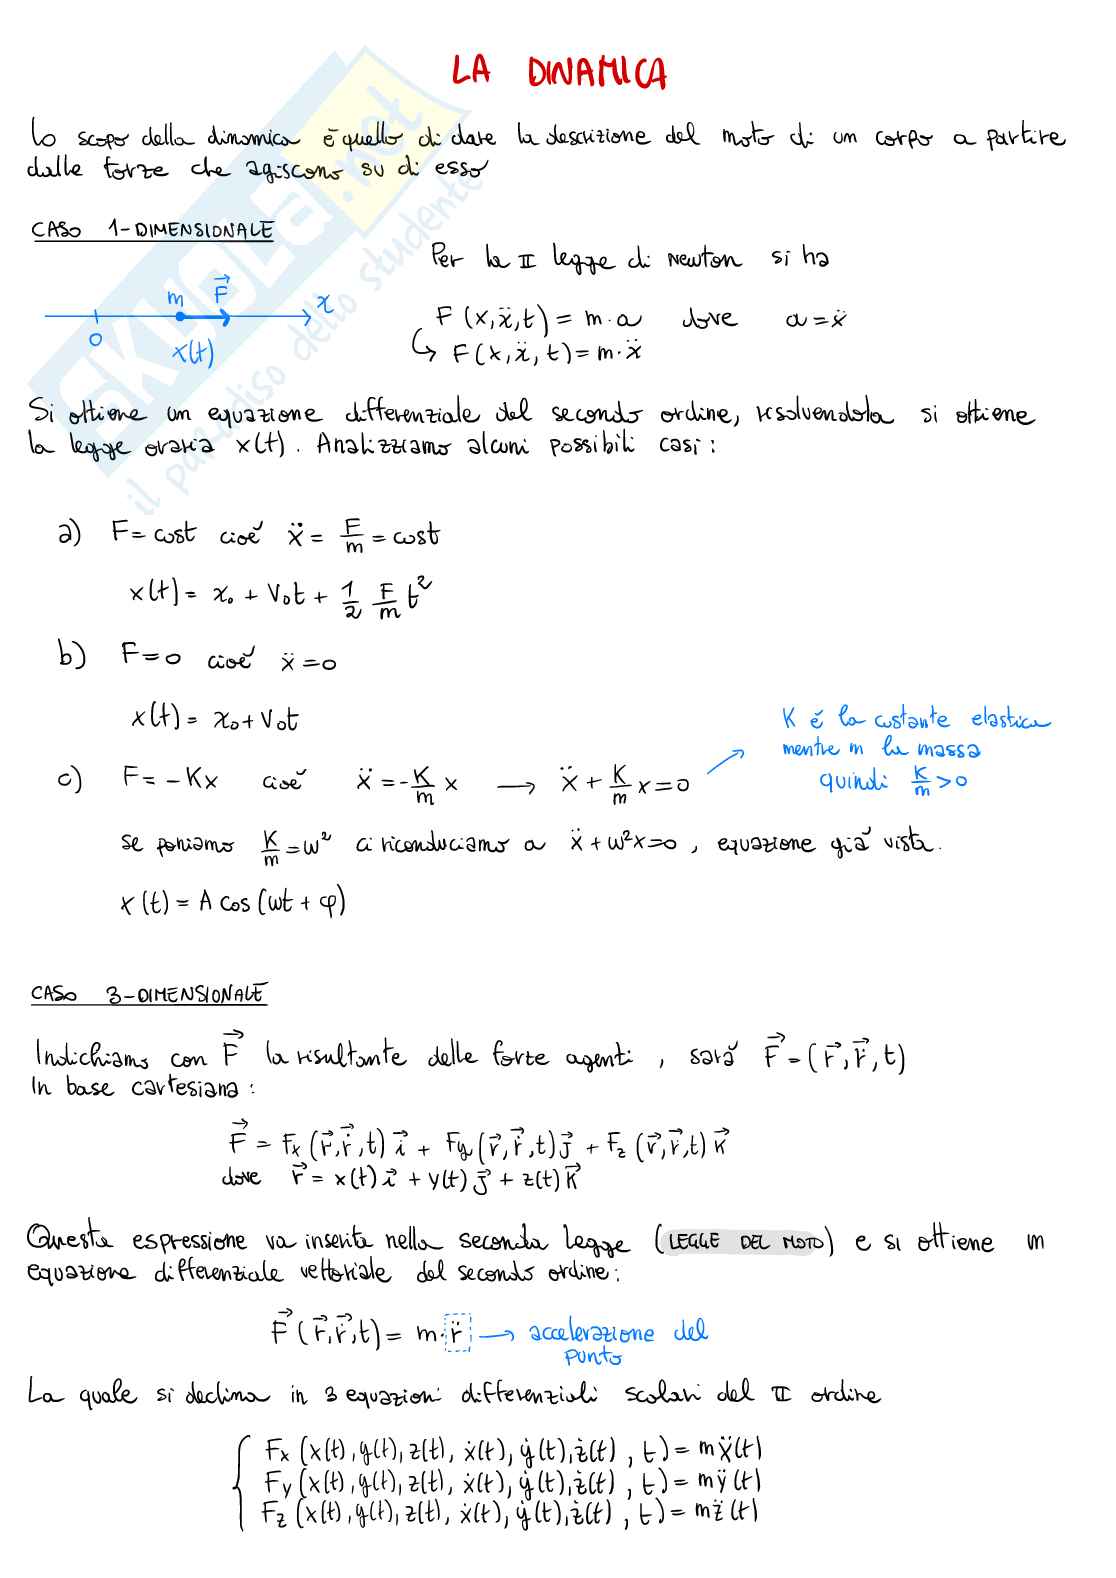 LA DINAMICA
Lo scopo della dinamica è quello di dare la descrizione del moto di un corpo a partire
dalle forze che agiscono su di esso
CASO 1-DIMENSIONALE
Per la II legge di Newton si ha
m F⃗ x
O x(t)
F(x,ẍ,t) = m·a dove a=ẍ
↳ F(x,ẍ,t)=m·ẍ
Si ottiene un equazione differenziale del secondo ordine, risolvendola si ottiene
la legge oraria x(t). Analizziamo alcuni possibili casi:
a) F=cost cioè ẍ = F/m = cost
x(t) = x₀ + v₀t + 1/2 F/m t²
b) F=0 cioè ẍ=0
x(t) = x₀+v₀t
K è la costante elastica
mentre m la massa
quindi K/m >0
c) F=-Kx cioè ẍ=-K/m x → ẍ + K/m x=0
se poniamo K/m=ω² ci riconduciamo a ẍ+ω²x=0, equazione già vista.
x(t) = A cos(ωt + φ)
CASO 3-DIMENSIONALE
Indichiamo con F⃗ la risultante delle forze agenti, sarà F⃗=(r⃗,ṙ⃗,t)
In base cartesiana:
F⃗ = Fx(r⃗,ṙ⃗,t)i⃗ + Fy(r⃗,ṙ⃗,t)j⃗ + Fz(r⃗,ṙ⃗,t)k⃗
dove r⃗ = x(t)i⃗ + y(t)j⃗ + z(t)k⃗
Questa espressione va inserita nella seconda legge (LEGGE DEL MOTO) e si ottiene un
equazione differenziale vettoriale del secondo ordine:
F⃗(r⃗,ṙ⃗,t) = m·r̈ → accelerazione del
punto
La quale si declina in 3 equazioni differenziali scalari del II ordine
Fx(x(t),y(t),z(t),ẋ(t),ẏ(t),ż(t),t)=mẍ(t)
Fy(x(t),y(t),z(t),ẋ(t),ẏ(t),ż(t),t)=mÿ(t)
Fz(x(t),y(t),z(t),ẋ(t),ẏ(t),ż(t),t)=mz̈(t)
SKUOLA.net
il paradiso dello studente